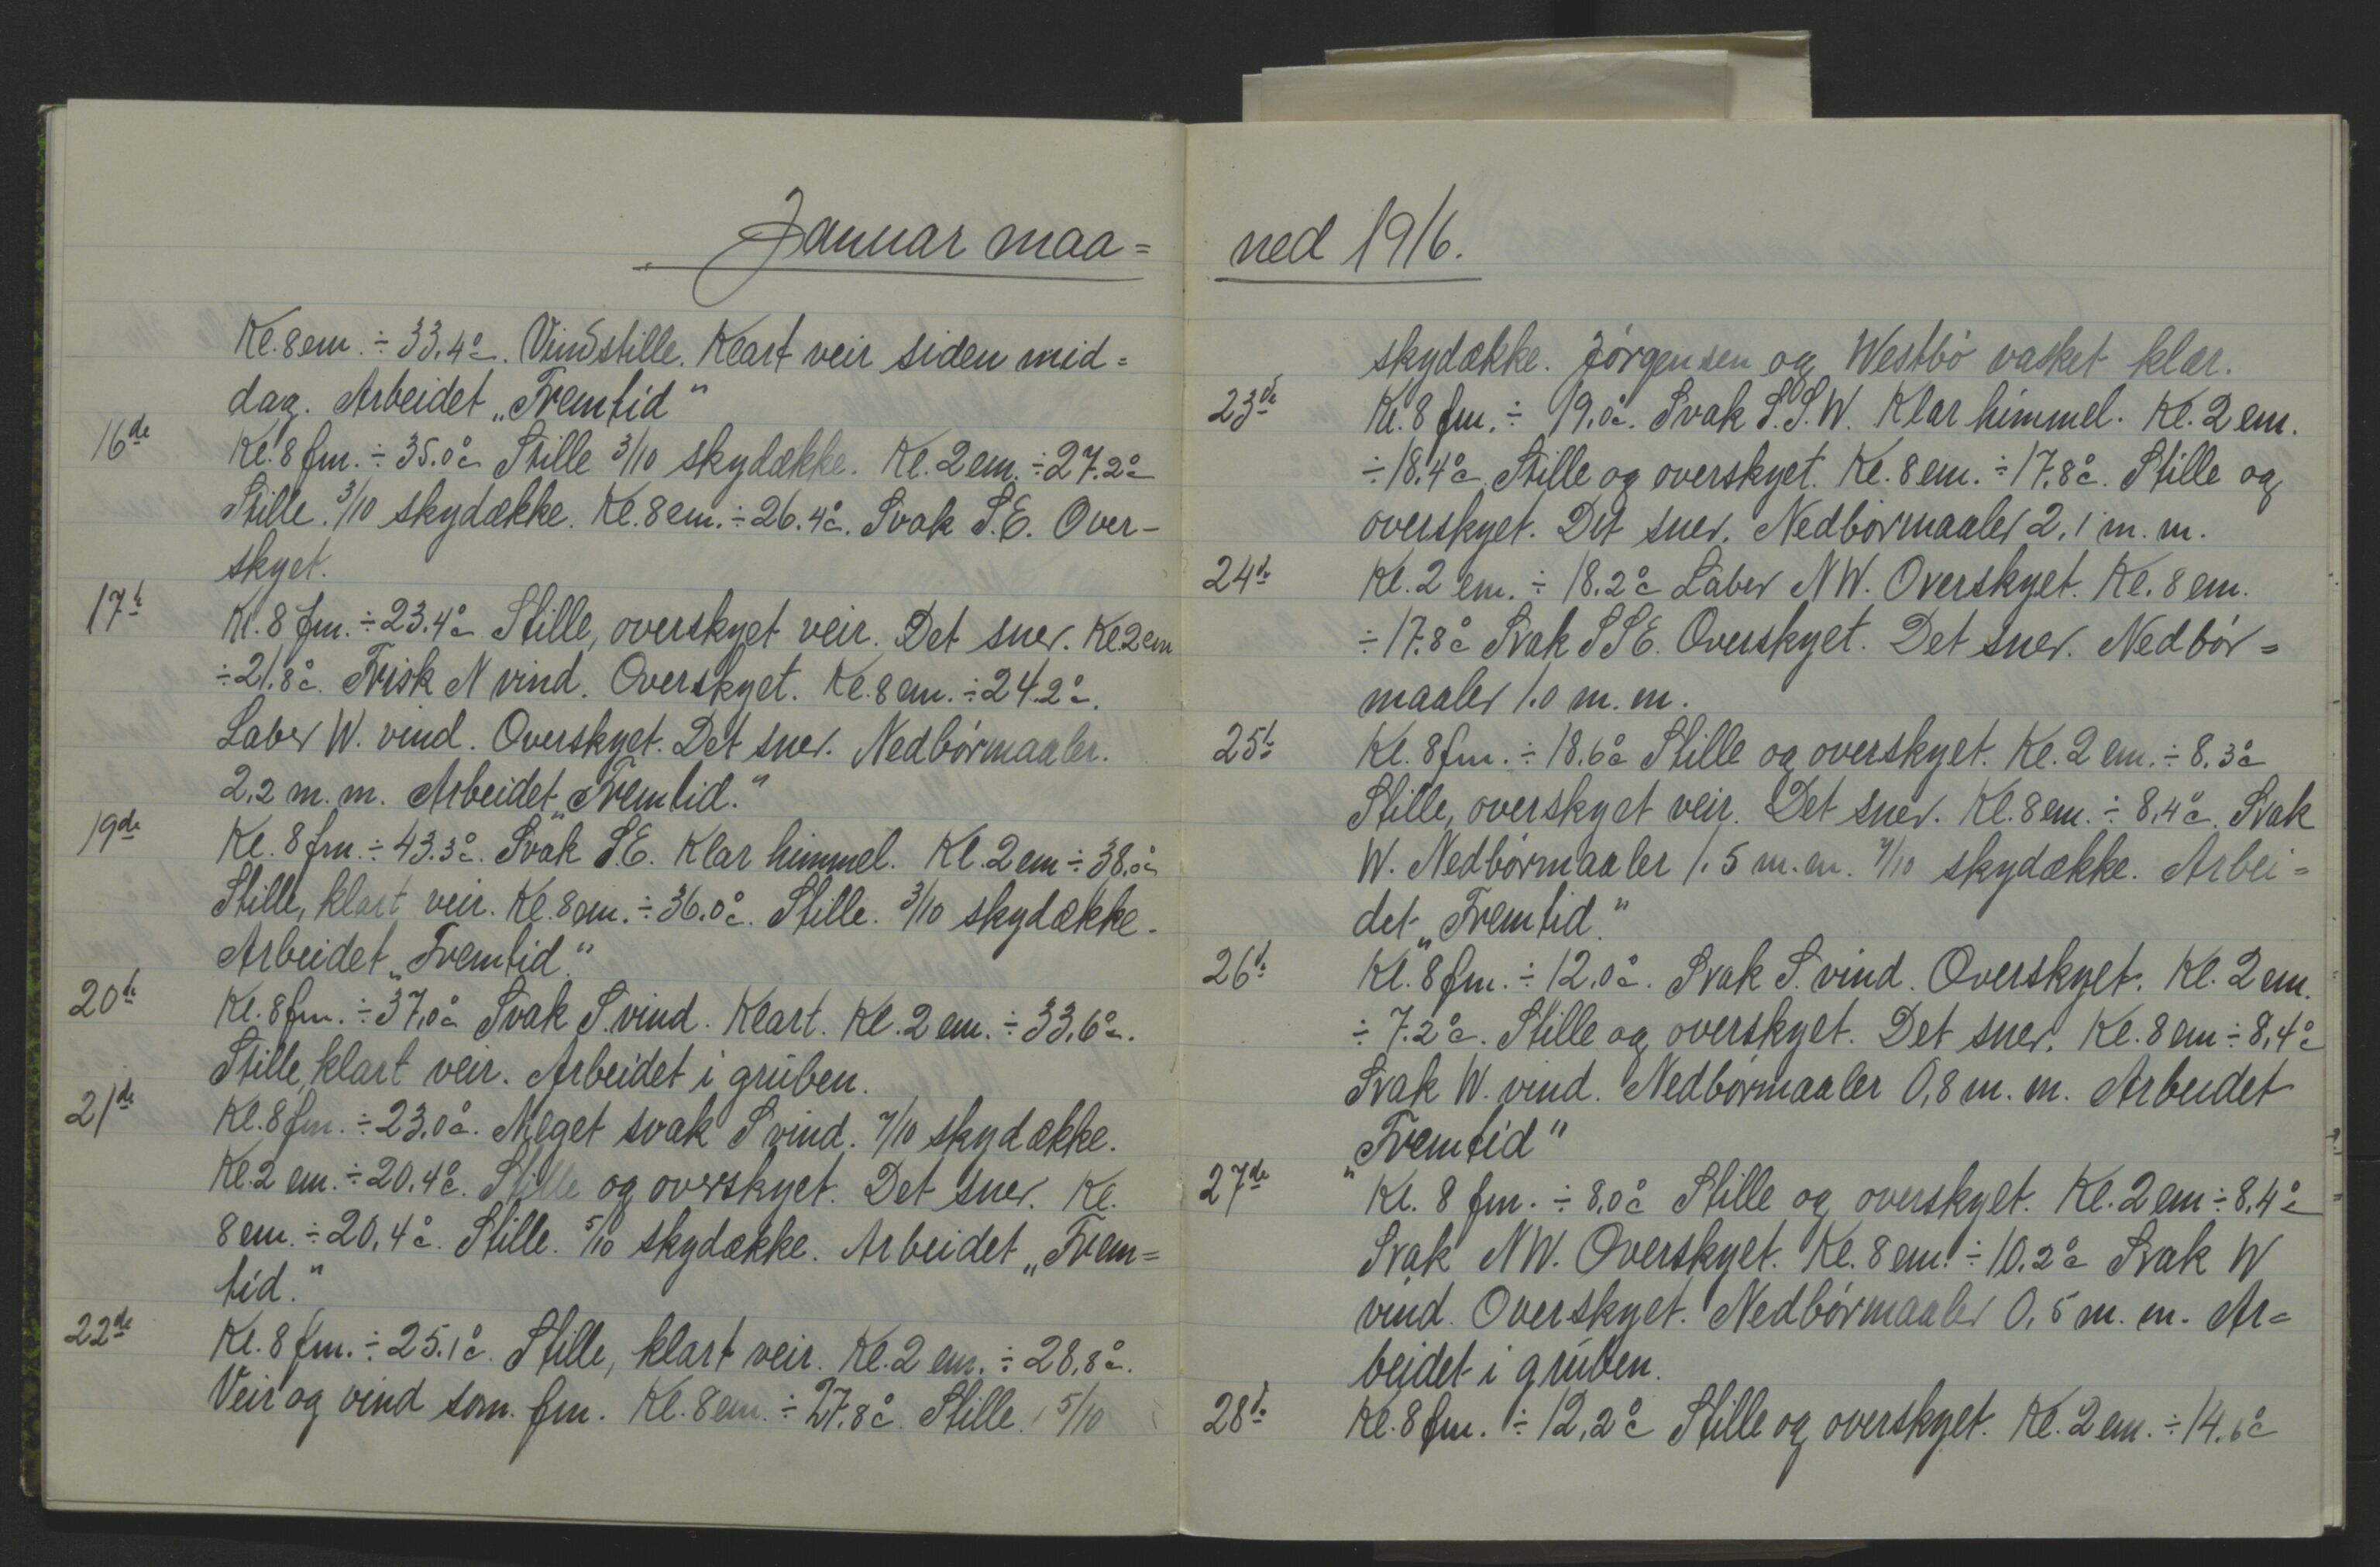 Januar maa=
Kl. 8 em. ÷ 33.4°c. Vindstille. Klart veir siden mid=
dag. Arbeidet „Fremtid"
16de Kl. 8 fm. ÷ 35.0°c Stille 3/10 skydække. Kl. 2 em. ÷ 27.2°c
Stille. 3/10 skydække. Kl. 8 em. ÷ 26.4°c. Svak S.E. Over-
skyet.
17de Kl. 8 fm. ÷ 23.4°c Stille, overskyet veir. Det sner. Kl. 2 em
÷ 21.8°c. Frisk N vind. Overskyet. Kl. 8 em. ÷ 24.2°c.
Laber W. vind. Overskyet. Det sner. Nedbörmaaler.
2,2 m.m. Arbeidet „Fremtid."
19de Kl. 8 fm. ÷ 43.3°c. Svak S.E. Klar himmel. Kl. 2 em ÷ 38.0°c
Stille, klart veir. Kl. 8 em. ÷ 36.0°c. Stille. 3/10 skydække.
Arbeidet „Fremtid."
20de Kl. 8 fm. ÷ 37,0°c Svak S. vind. Klart. Kl. 2 em. ÷ 33,6°c.
Stille, klart veir. Arbeidet i grüben.
21de Kl. 8 fm. ÷ 23,0°c. Meget svak S vind. 7/10 skydække.
Kl. 2 em. ÷ 20,4°c. Stille og overskyet. Det sner. Kl.
8 em. ÷ 20,4°c. Stille. 5/10 skydække. Arbeidet „Frem=
tid."
22de Kl. 8 fm. ÷ 25.1°c. Stille, klart veir. Kl. 2 em. ÷ 28,8°c.
Veir og vind som fm. Kl. 8 em. ÷ 27.8°c. Stille. 5/10
ned 1916.
skydække. Jörgensen og Westbö vasket klær.
23de Kl. 8 fm. ÷ 19.0°c. Svak S.S.W. Klar himmel. Kl. 2 em.
÷ 18.4°c. Stille og overskyet. Kl. 8 em. ÷ 17.8°c. Stille og
overskyet. Det sner. Nedbörmaaler 2,1 m.m.
24de Kl. 2 em. ÷ 18.2°c Laber NW. Overskyet. Kl. 8 em.
÷ 17.8°c Svak SSE. Overskyet. Det sner. Nedbör=
maaler 1.0 m.m.
25de Kl. 8 fm. ÷ 18.6°c Stille og overskyet. Kl. 2 em. ÷ 8.3°c
Stille, overskyet veir. Det sner. Kl. 8 em. ÷ 8,4°c. Svak
W. Nedbörmaaler 1.5 m.m. 7/10 skydække. Arbei=
det „Fremtid."
26de Kl. 8 fm. ÷ 12.0°c. Svak S. vind. Overskyet. Kl. 2 em.
÷ 7.2°c. Stille og overskyet. Det sner. Kl. 8 em ÷ 8,4°c
Svak W. vind. Nedbörmaaler 0,8 m.m. Arbeidet
„Fremtid"
27de Kl. 8 fm. ÷ 8.0°c Stille og overskyet. Kl. 2 em ÷ 8,4°c
Svak NW. Overskyet. Kl. 8 em. ÷ 10.2°c Svak W
vind. Overskyet. Nedbörmaaler 0,5 m.m. Ar=
beidet i grüben.
28de Kl. 8 fm. ÷ 12,2°c Stille og overskyet. Kl. 2 em. ÷ 14.6°c